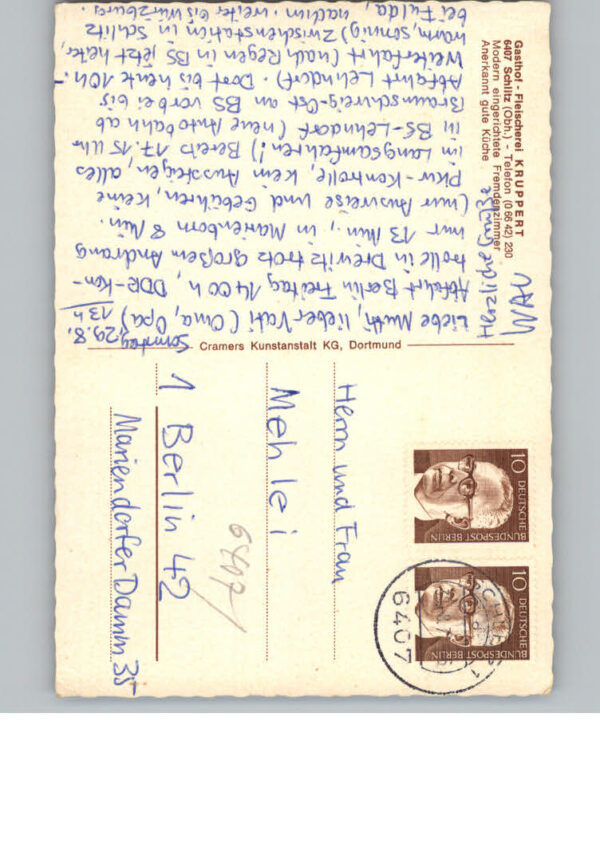 Gasthof - Fleischerei KRUPPERT
6407 Schlitz (Obh.) - Telefon (0 66 42) 230
Modern eingerichtete Fremdenzimmer
Anerkannt gute Küche
Sonntag, 29.8,
13 h
Liebe Mutti, lieber Vati (Oma, Opa)
Abfahrt Berlin Freitag 1400 h, DDR-Kon-
trolle in Drewitz trotz großem Andrang
nur 13 Min., in Marienborn 8 Min.
(nur Ausweise und Gebühren, keine
Pkw-Kontrolle, kein Aussteigen, alles
im Langsamfahren!) Bereits 17.15 Uhr
in BS-Lehndorf (neue Autobahn ab
Braunschweig-Ost an BS vorbei bis
Abfahrt Lehndorf). Dort bis heute 10h.-
Weiterfahrt (nach Regen in BS jetzt heiter,
warm, sonnig) Zwischenstation in Schlitz
bei Fulda, nachm. weiter bis Würzburg.
Herzliche Grüße
Cramers Kunstanstalt KG, Dortmund
10 DEUTSCHE
BUNDESPOST BERLIN
10 DEUTSCHE
BUNDESPOST BERLIN
6407
1
Herrn und Frau
Mehlei
1 Berlin 42
Mariendorfer Damm 35
6407